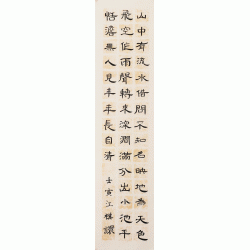 山中有流水借問不知名映地為天色
飛空作雨聲轉來深澗滿分出小池平
恬澹無人見年年長自清 壬寅江